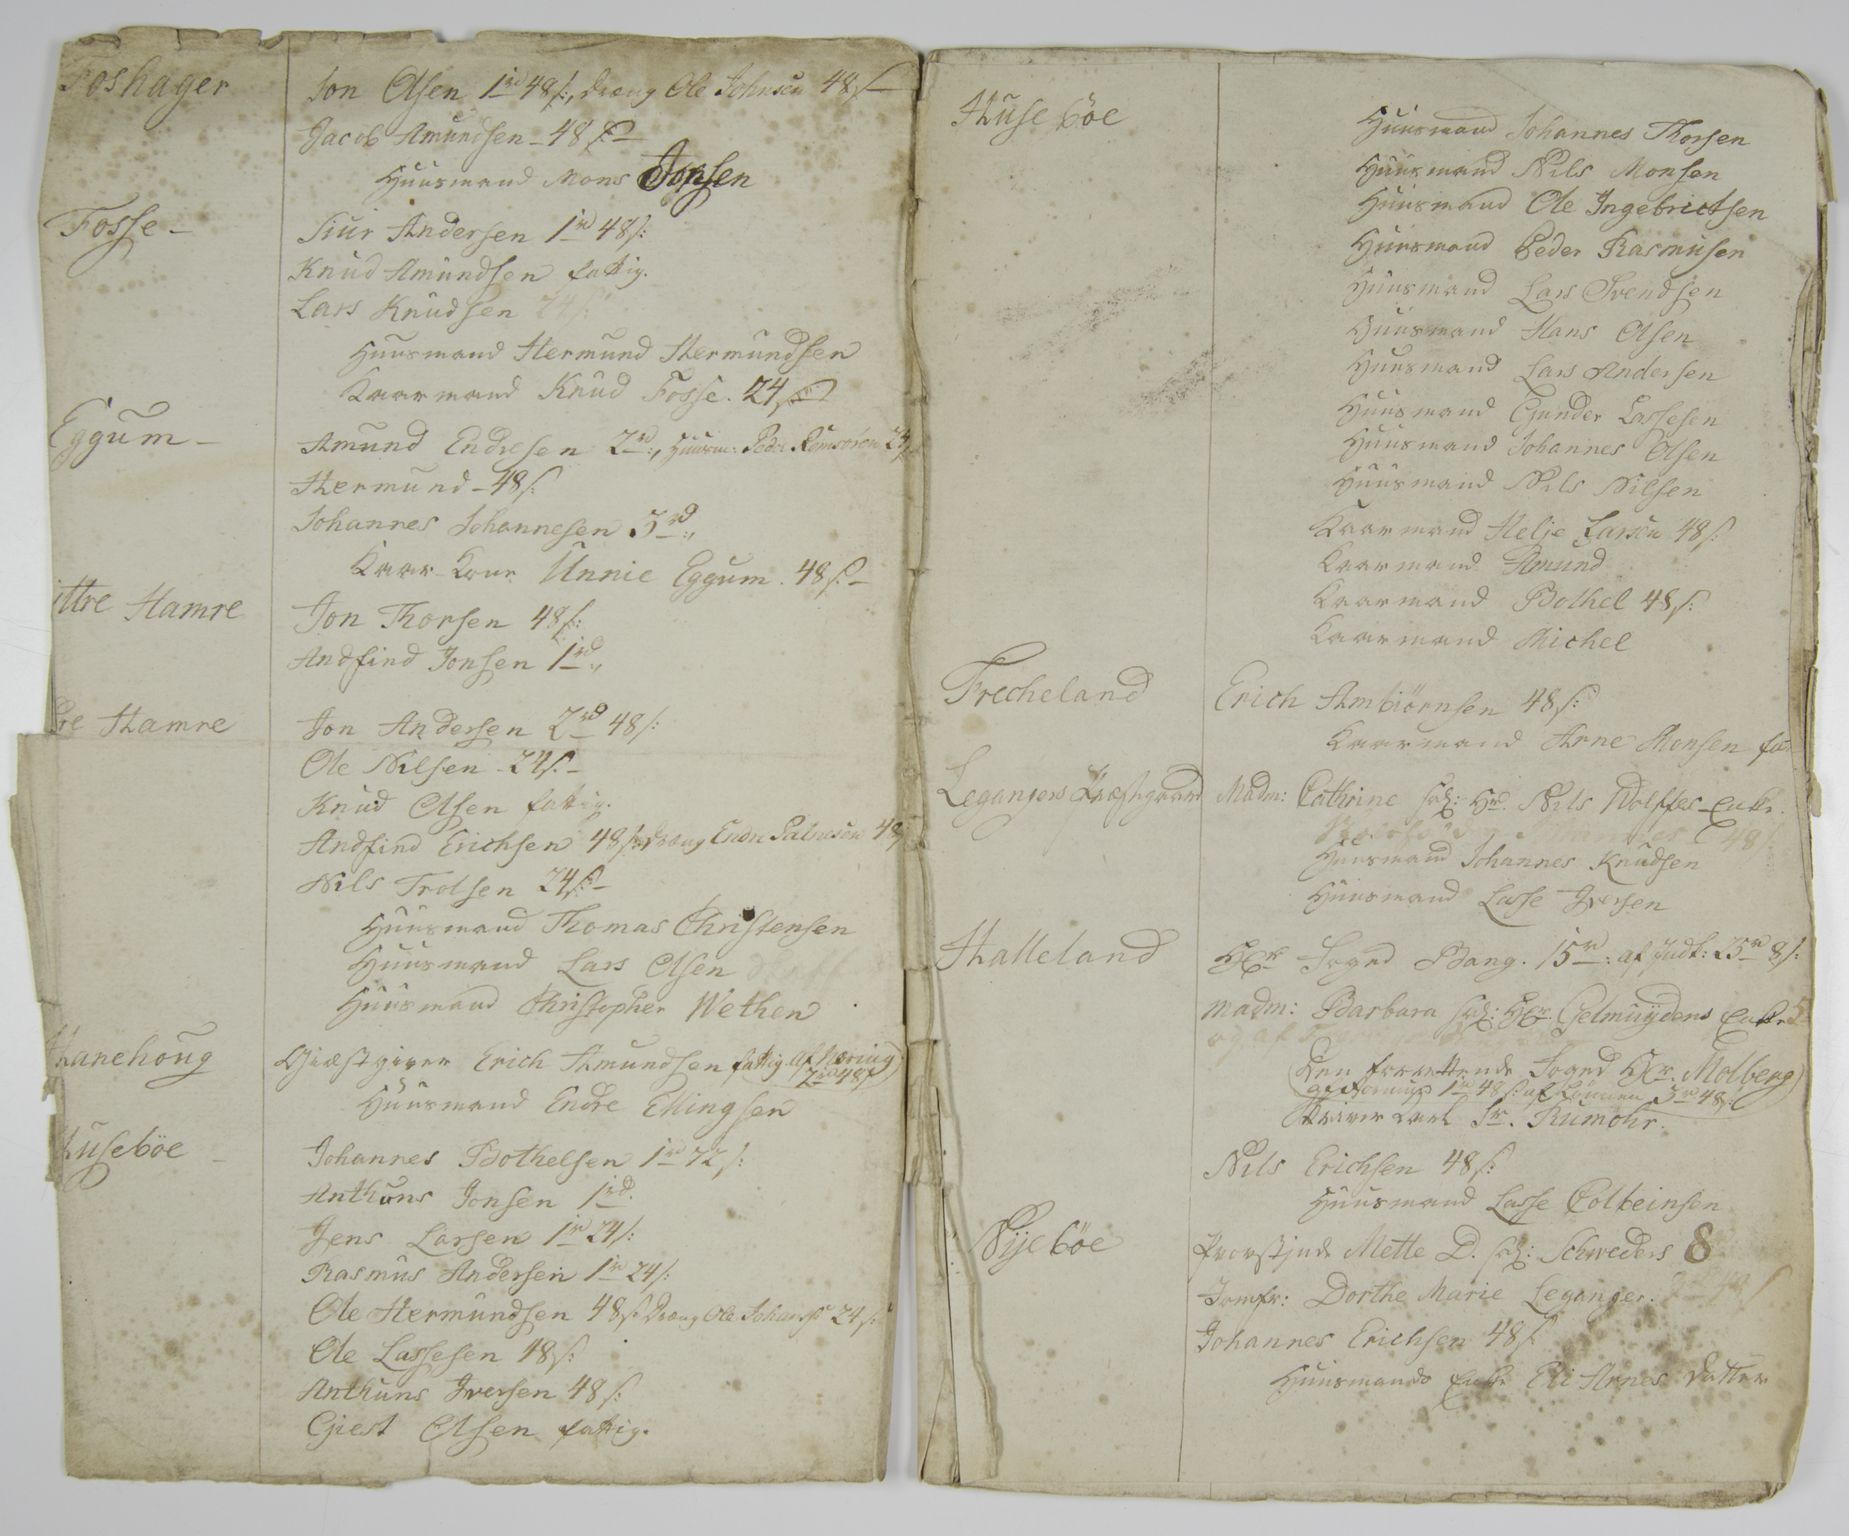 Foshager
Jon Olsen 1rd 48ß:, dreng Ole Johnsen 48ß
Jacob Amundsen - 48ß
Huusmand Mons Jonsen
Fosse -
Siur Andersen 1rd 48ß:
Knud Amundsen fattig.
Lars Knudsen 24ß
Huusmand Hermund Hermundsen
Kaarmand Knud Fosse. 24ß
Eggum -
Amund Endresen 2rd:, Huusm: Peder 24
Hermund - 48ß:
Johannes Johannesen 3rd:,
Kaar Kone Unnie Eggum. 48ß -
ittre Hamre
Jon Thorsen 48ß:
Andfind Jonsen 1rd:,
re Hamre
Jon Andersen 2rd 48ß:
Ole Nilsen - 24ß -
Knud Olsen fattig.
Andfind Erichsen 48ß: dreng Endre 48
Nils Trolsen 24ß -
Huusmand Thomas Christensen
Huusmand Lars Olsen
Huusmand Christopher Wethen
Hanehoug
Giæstgiver Erich Amundsen fattig. af Næring
2rd 48ß
Huusmand Endre Ellingsen
Huseböe -
Johannes Bothelsen 1rd 72ß:
Anthuns Jonsen 1rd.
Jens Larsen 1rd 24ß:
Rasmus Andersen 1rd 24ß:
Ole Hermundsen 48ß: dreng Ole Johans: 24ß:
Ole Lassesen 48ß:
Anthuns Iversen 48ß:
Giest Olsen fattig.
Huseböe
Huusmand Johannes Thorsen
Huusmand Nils Monsen
Huusmand Ole Ingebrictsen
Huusmand Peder Rasmusen
Huusmand Lars Svendsen
Huusmand Hans Olsen
Huusmand Lars Andersen
Huusmand Gunder Lassesen
Huusmand Johannes Olsen
Huusmand Nils Nilsen
Kaarmand Helje Larsen 48ß:
Kaarmand Amund
Kaarmand Bothel 48ß:
Kaarmand Michel
Frecheland
Erich Ambiörnsen 48ß:
Kaarmand Arne Monsen
Legangers Præstgaard
Madm: Cathrine sal: Hr. Nils Wolffes Enke.
48ß
Huusmand Johannes Knudsen
Huusmand Lasse Iversen
Halleland
Hr Foged Bang. 15rd: af Indt: 25rd 8ß:
Madm: Barbara sal: Hr. Gelmuijdens Enke
Den forrettende Foged Hr. Molberg
af Næring 1rd 48ß: af Lönnen 3rd 48ß:
Skriver Karl Sr. Rumohr.
Nils Erichsen 48ß:
Huusmand Lasse Colbeinsen
Nijeböe
Provstinde Mette D. sal: Schreders 8
Jomfr: Dorthe Marie Leganger.
Johannes Erichsen 48ß
Huusmands Enke Eli Arnes datter